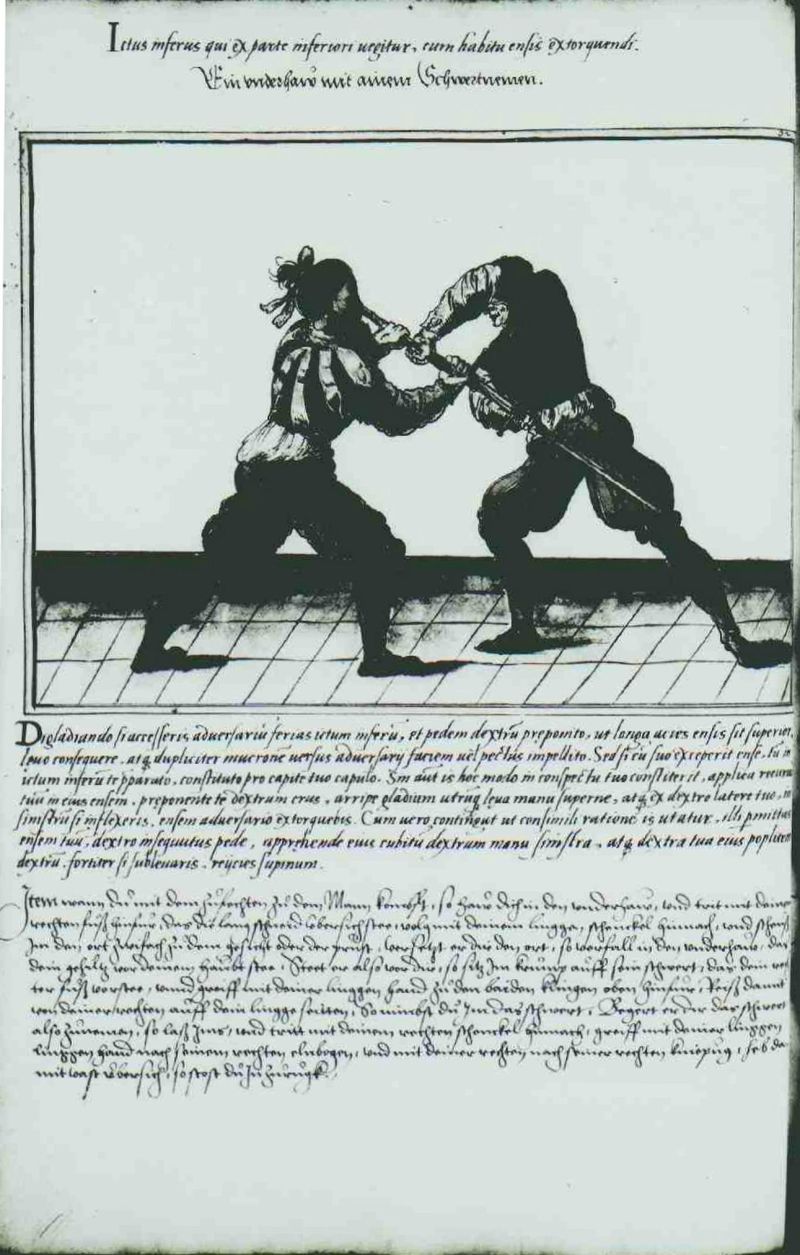 Ictus inferus qui ex parte inferiori uegitur, cum habitu ensis extorquendi.
Ein vnderhaw mit ainem Schwertnemen.
Digladiando si accesseris adversariũ ferias ictum inferũ, et pedem dextrũ preponito, ut longa acies ensis sit superior,
levo consequere, atq dupliciter mucronẽ versus adversarij faciem uel pectus impellito. Sed si eũ suo exceperit ense, tu in
ictum inferũ te apparato, constituto pro capite tuo capulo. Sin aut is hoc modo in conspectu tuo constiterit, applica
tuũ in eius ensem, preponente te dextrum crus, arripe gladium utrũq leva manu superne, atq ex dextro latere tuo, in
sinistrũ si inflexeris, ensem adversario extorquebis. Cum uero contingat ut consimili ratione is utatur, illi pmittas
ensem tuũ, dextro insequutus pede, apprehende eius cubitũ dextrum manu sinistra, atq dextra tua eius popliten
dextrũ, fortiter si sublevaris, reijcies supinum.
Item wann du mit dem zufechten zu dem Mann kombst, so haw dich in den vnderhaw, vnd trit mit deinem
rechten fuß hinfur, das die lang schneid vbersich stee, volg mit deinem linggen schenckel hinnach, vnd scheuß
Im den ort zwifach zu dem gesicht oder der prust, versetzt er dir den ort, so verfall in den vnderhaw, das
dein gehiltz vor deinem haubt stee, Steet er also vor dir, so sitz Im krump auff sein schwert, das dein rech
ter fuß vorstee, vnnd greiff mit deiner linggen hand zu den baiden klingen oben hinfur, Reiß damit
von deiner rechten auff dein lingge seitten, So nimbst du Im das schwert, Begert er dir das schwert
also zunemen, so laß Ims, vnd tritt mit deinem rechten schenckel hinnach, greiff mit deiner linggen
linggen hand nach seinem rechten elnbogen, vnd mit deiner rechten nach seiner rechten kniepug, heb da
mit vast vbersich, so stost du In zurugk.